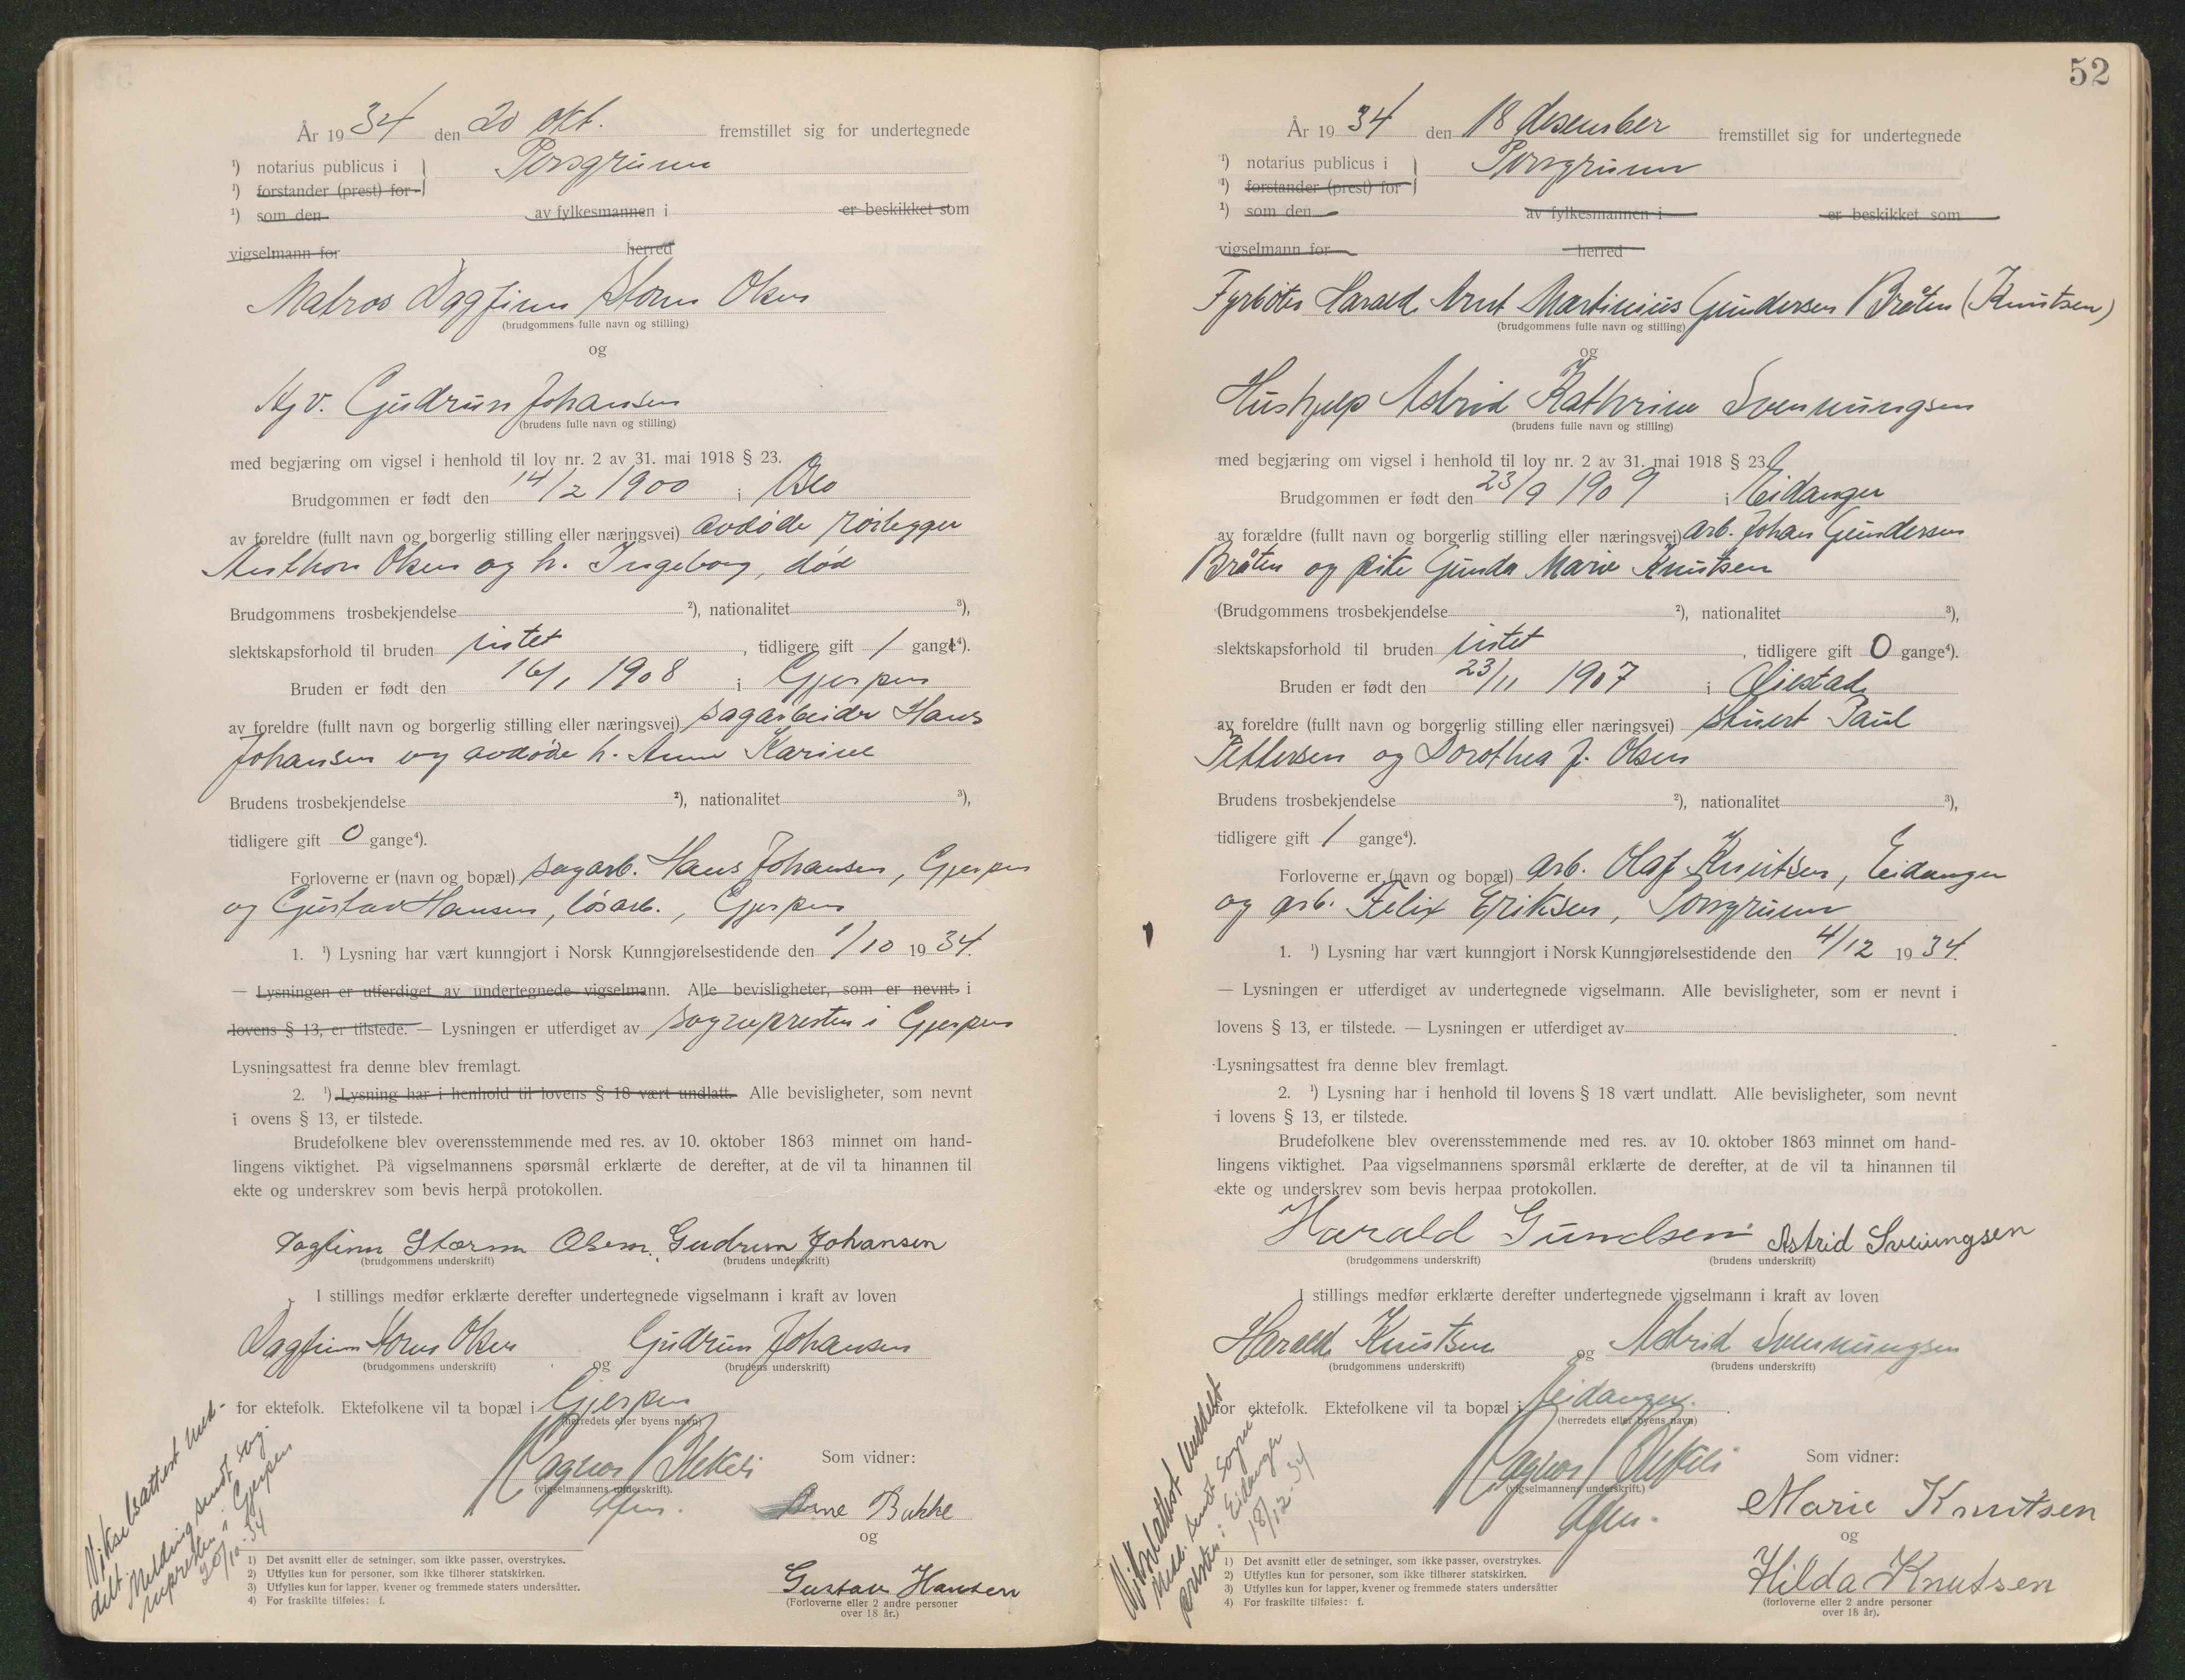 År 1934 den 20 okt. fremstillet sig for undertegnede
¹) notarius publicus i } Porsgrunn
¹) forstander (prest) for
¹) som den av fylkesmannen i er beskikket som
vigselmann for herred
Matros Dagfinn Storm Olsen
(brudgommens fulle navn og stilling)
og
Kjv. Gudrun Johansen
(brudens fulle navn og stilling)
med begjæring om vigsel i henhold til lov nr. 2 av 31. mai 1918 § 23.
Brudgommen er født den 14/2 1900 i Oslo
av foreldre (fullt navn og borgerlig stilling eller næringsvei) avdøde rørlegger
Anthon Olsen og h. Ingeborg, død
Brudgommens trosbekjendelse ²), nationalitet ³),
slektskapsforhold til bruden intet, tidligere gift 1 gang⁴).
Bruden er født den 16/1 1908 i Gjerpen
av foreldre (fullt navn og borgerlig stilling eller næringsvei) sagarbeider Hans
Johansen og avdøde h. Anne Karine
Brudens trosbekjendelse ²), nationalitet ³),
tidligere gift 0 gange⁴).
Forloverne er (navn og bopæl) sagarb. Hans Johansen, Gjerpen
og Gustav Hansen, løsarb., Gjerpen
1. ¹) Lysning har vært kunngjort i Norsk Kunngjørelsestidende den 1/10 1934.
— Lysningen er utferdiget av undertegnede vigselmann. Alle bevisligheter, som er nevnt i
lovens § 13, er tilstede. — Lysningen er utferdiget av sognepresten i Gjerpen
Lysningsattest fra denne blev fremlagt.
2. ¹) Lysning har i henhold til lovens § 18 vært undlatt. Alle bevisligheter, som nevnt
i ovens § 13, er tilstede.
Brudefolkene blev overensstemmende med res. av 10. oktober 1863 minnet om hand-
lingens viktighet. På vigselmannens spørsmål erklærte de derefter, at de vil ta hinannen til
ekte og underskrev som bevis herpå protokollen.
Dagfinn Storm Olsen. Gudrun Johansen
(brudgommens underskrift) (brudens underskrift)
I stillings medfør erklærte derefter undertegnede vigselmann i kraft av loven
Dagfinn Storm Olsen og Gudrun Johansen
(brudgommens underskrift) (brudens underskrift)
for ektefolk. Ektefolkene vil ta bopæl i Gjerpen
(herredets eller byens navn)
Ragnar
(vigselmannens underskrift).
Som vidner:
Arne Bakke
og
Gustav Hansen
(Forloverne eller 2 andre personer
over 18 år.)
Vikselsattest med-
delt.
Melding sendt sog-
nepresten i Gjerpen
20/10-34
1) Det avsnitt eller de setninger, som ikke passer, overstrykes.
2) Utfylles kun for personer, som ikke tilhører statskirken.
3) Utfylles kun for lapper, kvener og fremmede staters undersåtter.
4) For fraskilte tilføies: f.
52
År 1934 den 18 desember fremstillet sig for undertegnede
¹) notarius publicus i } Porsgrunn
¹) forstander (prest) for
¹) som den av fylkesmannen i er beskikket som
vigselmann for herred
Fyrbøter Harald Arnt Martinius Gundersen Bråten (Knutsen)
(brudgommens fulle navn og stilling)
og
Hushjelp Astrid Kathrine Svennungsen
(brudens fulle navn og stilling)
med begjæring om vigsel i henhold til lov nr. 2 av 31. mai 1918 § 23.
Brudgommen er født den 23/9 1909 i Eidanger
av forældre (fullt navn og borgerlig stilling eller næringsvei) arb. Johan Gundersen
Bråten og pike Gunda Marie Knutsen
(Brudgommens trosbekjendelse ²), nationalitet ³),
slektskapsforhold til bruden intet, tidligere gift 0 gange⁴).
Bruden er født den 23/11 1907 i Øiestad
av foreldre (fullt navn og borgerlig stilling eller næringsvei) stuert Paul
Pettersen og Dorothea J. Olsen
Brudens trosbekjendelse ²), nationalitet ³),
tidligere gift 1 gange⁴).
Forloverne er (navn og bopæl) arb. Olaf Knutsen, Eidanger
og arb. Felix Eriksen, Porsgrunn
1. ¹) Lysning har vært kunngjort i Norsk Kunngjørelsestidende den 4/12 1934.
— Lysningen er utferdiget av undertegnede vigselmann. Alle bevisligheter, som er nevnt i
lovens § 13, er tilstede. — Lysningen er utferdiget av .
Lysningsattest fra denne blev fremlagt.
2. ¹) Lysning har i henhold til lovens § 18 vært undlatt. Alle bevisligheter, som nevnt
i lovens § 13, er tilstede.
Brudefolkene blev overensstemmende med res. av 10. oktober 1863 minnet om hand-
lingens viktighet. Paa vigselmannens spørsmål erklærte de derefter, at de vil ta hinannen til
ekte og underskrev som bevis herpaa protokollen.
Harald Gundsen Astrid Sveiungsen
(brudgommens underskrift) (brudens underskrift)
I stillings medfør erklærte derefter undertegnede vigselmann i kraft av loven
Harald Knutsen og Astrid Svennungsen
(brudgommens underskrift) (brudens underskrift)
for ektefolk. Ektefolkene vil ta bopæl i Eidanger.
(herredets eller byens navn)
Ragnar
(vigselmannens underskrift.)
Som vidner:
Marie Knutsen
og
Hilda Knutsen
(forloverne eller 2 andre personer
over 18 år).
Vikselattest meddelt
Meld. sendt sogne-
presten i Eidanger
18/12-34
1) Det avsnitt eller de setninger, som ikke passer, overstrykes.
2) Utfylles kun for personer, som ikke tilhører statskirken.
3) Utfylles kun for lapper, kvener og fremmede staters undersåtter
4) For fraskilte tilføies: f.